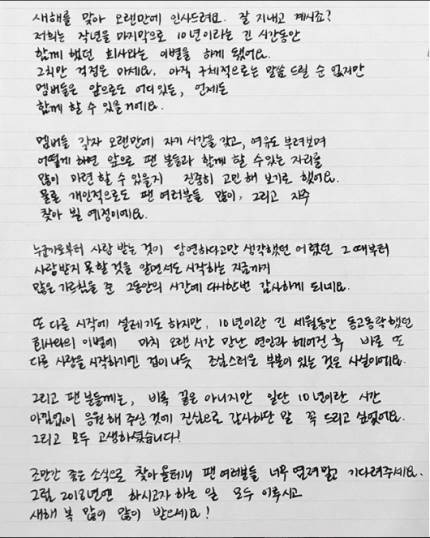 새해를 맞아 오랜만에 인사드려요. 잘 지내고 계시죠?
저희는 작년을 마지막으로 10년이라는 긴 시간동안
함께 했던 회사와는 이별을 하게 됐어요.
그치만 걱정은 마세요. 아직 구체적으로는 말씀 드릴 순 없지만
멤버들은 앞으로도 어디있든, 언제든
함께 할 수 있을 거에요.
멤버들 각자 오랜만에 자기 시간을 갖고, 여유도 부려보며
어떻게 하면 앞으로 팬 분들과 함께 할 수 있는 자리를
많이 마련 할 수 있을지 진중히 고민 해 보기로 했어요.
물론 개인적으로도 팬 여러분들 많이, 그리고 자주
찾아 뵐 예정이에요.
누군가로부터 사랑 받는 것이 당연하다고만 생각했던 어렸던 그 때부터
사랑받지 못할 것을 알면서도 시작하는 지금까지
많은 가르침을 준 그동안의 시간에 다시한번 감사하게 되네요.
또 다른 시작에 설레기도 하지만, 10년이란 긴 세월동안 동고동락했던
회사와의 이별에 마치 오랜 시간 만난 연인과 헤어진 후 바로 또
다른 사랑을 시작하기엔 겁이 나듯 조심스러운 부분이 있는 것은 사실이에요.
그리고 팬 분들께는, 비록 끝은 아니지만 일단 10년이란 시간
아낌없이 응원 해 주신 것에 진심으로 감사하단 말 꼭 드리고 싶었어요.
그리고 모두 고생하셨습니다!
조만간 좋은 소식으로 찾아 올테니 팬 여러분들 너무 염려말고 기다려주세요.
그럼 2018년엔 하시고자 하는 일 모두 이루시고
새해 복 많이 많이 받으세요!